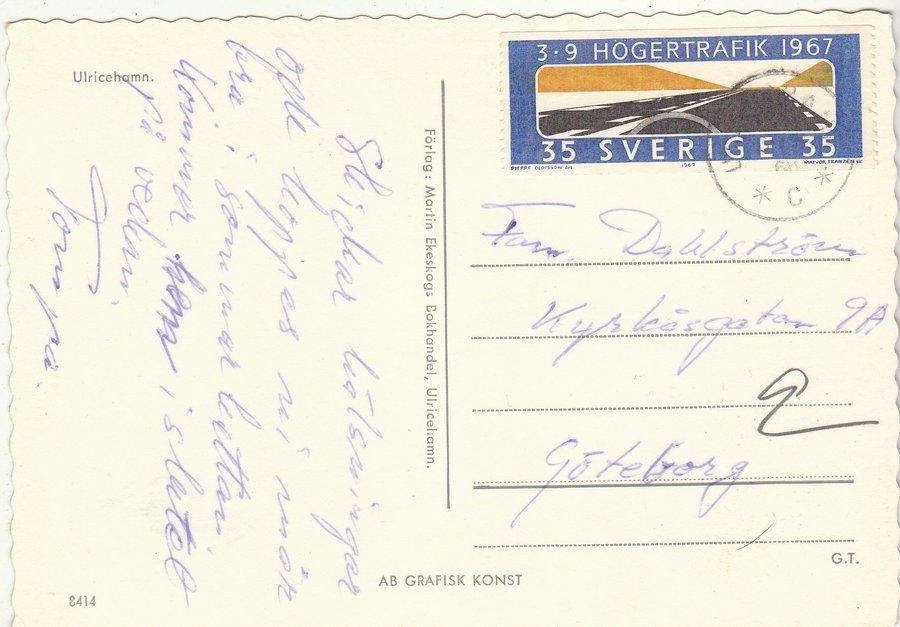 Ulricehamn.
3·9 HÖGERTRAFIK 1967
35 SVERIGE 35
PIERRE OLOFSSON del.
1967
MAJVOR FRANZÉN sc
* C *
Skickar hälsningar
hoppas ni mår
bra i sommarhettan
Kommer hem i slutet
på veckan.
Förlag: Martin Ekeskogs Bokhandel, Ulricehamn.
Fam. Dahlström
Kyrkåsgatan 9A
Göteborg
G.T.
AB GRAFISK KONST
8414